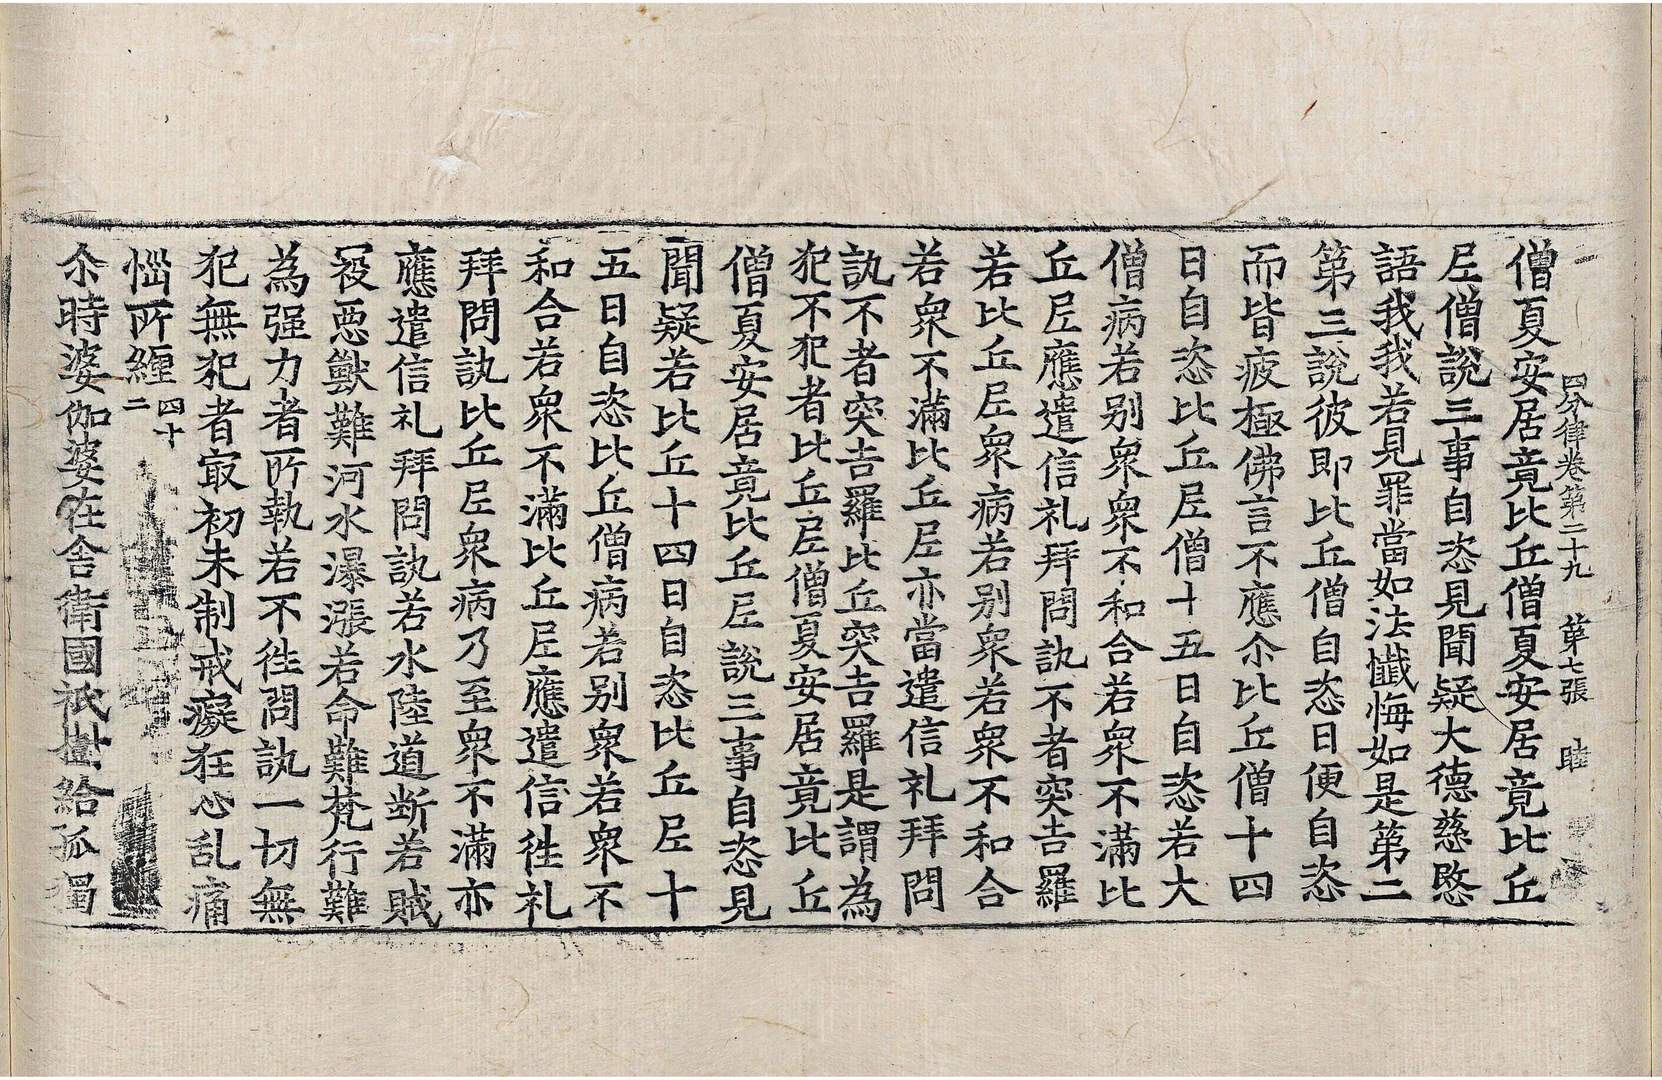 四分律卷第二十九 第七張 睦
僧夏安居竟比丘僧夏安居竟比丘
尼僧說三事自恣見聞疑大德慈愍
語我我若見罪當如法懺悔如是第二
第三說彼即比丘僧自恣日便自恣
而皆疲極佛言不應尒比丘僧十四
日自恣比丘尼僧十五日自恣若大
僧病若別衆衆不和合若衆不滿比
丘尼應遣信礼拜問訊不者突吉羅
若比丘尼衆病若別衆若衆不和合
若衆不滿比丘尼亦當遣信礼拜問
訊不者突吉羅比丘突吉羅是謂為
犯不犯者比丘尼僧夏安居竟比丘
僧夏安居竟比丘尼說三事自恣見
聞疑若比丘十四日自恣比丘尼十
五日自恣比丘僧病若別衆若衆不
和合若衆不滿比丘尼應遣信徃礼
拜問訊比丘尼衆病乃至衆不滿亦
應遣信礼拜問訊若水陸道断若賊
冦惡獸難河水瀑漲若命難梵行難
為强力者所執若不徃問訊一切無
犯無犯者㝡初未制戒癡狂心乱痛
惱所纏 四十二
尒時婆伽婆在舍衛國祇樹給孤獨